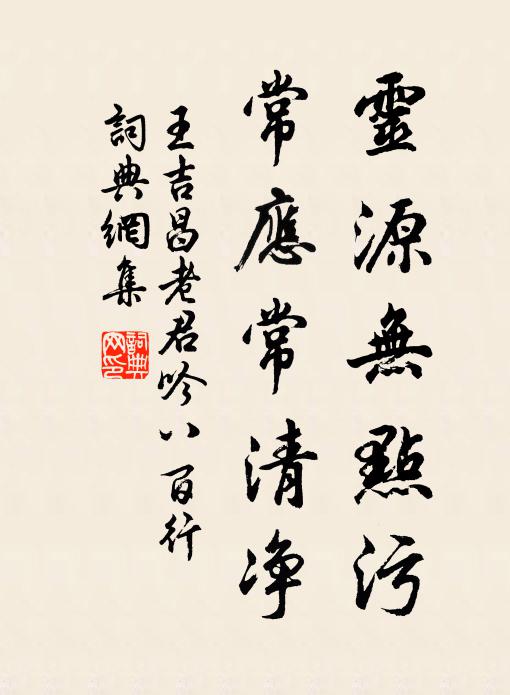 靈源無點污
常應常清净
王吉昌老君吟八百行
詞典網集
詞典
网印